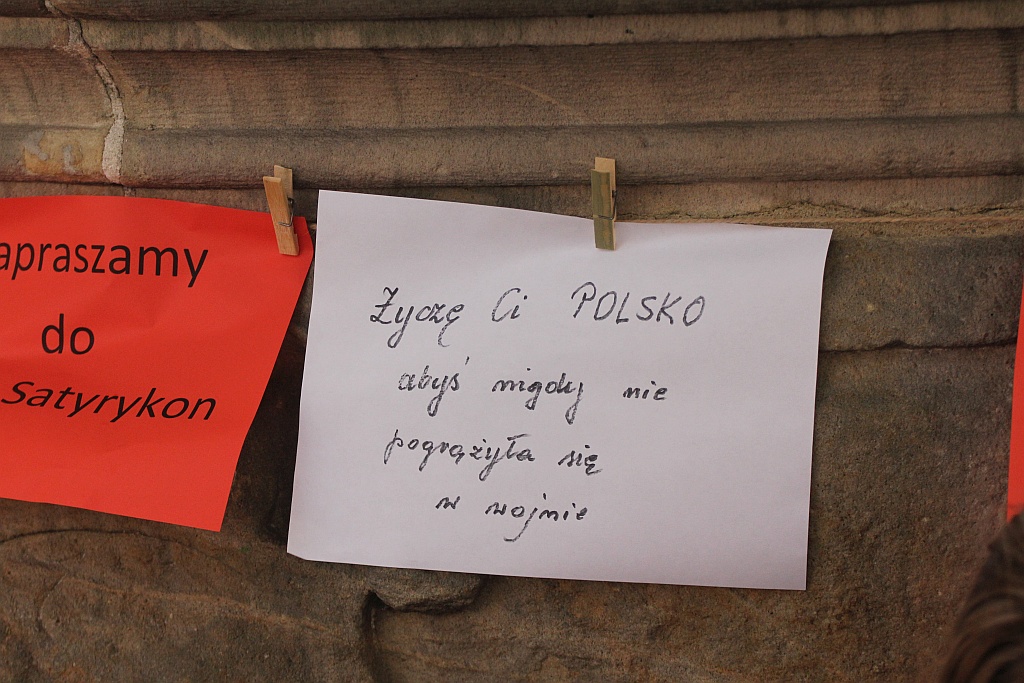 apraszamy
do
Satyrykon
Życzę Ci POLSKO
abyś nigdy nie
pogrążyła się
w wojnie